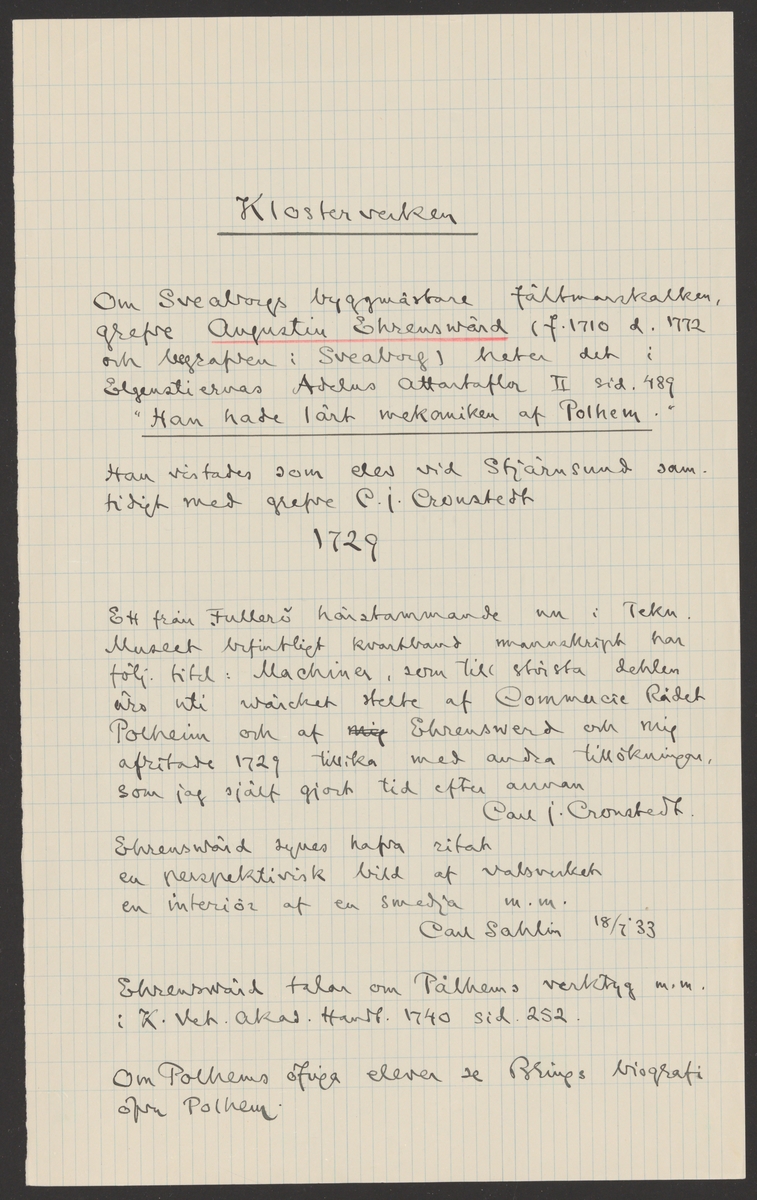 Klosterverken
Om Sveaborgs byggmästare fältmarskalken,
grefve Augustin Ehrenswärd (f. 1710 d. 1772
och begrafven i Sveaborg) heter det i
Elgenstiernas Adelns Attartaflor II sid. 489
"Han hade lärt mekaniken af Polhem."
Han vistades som elev vid Stjärnsund sam-
tidigt med grefve C. j. Cronstedt
1729
Ett från Fullerö härstammande nu i Tekn.
Museet befintligt kvartband manuskript har
följ. titel: Machiner, som till största dehlen
äro uti wärcket stelte af Commercie Rådet
Polheim och af mig Ehrenswerd och mig
afritade 1729 tillika med andra tillökningar,
som jag sjelf gjort tid efter annan
Carl j. Cronstedt.
Ehrenswärd synes hafva ritat
en perspektivisk bild af valsverket
en interiör af en smedja m.m.
Carl Sahlin 18/7 33
Ehrenswärd talar om Pålhems verktyg m.m.
i K. Vet. Akad. Handl. 1740 sid. 252.
Om Polhems öfriga elever se Brings biografi
öfver Polhem.